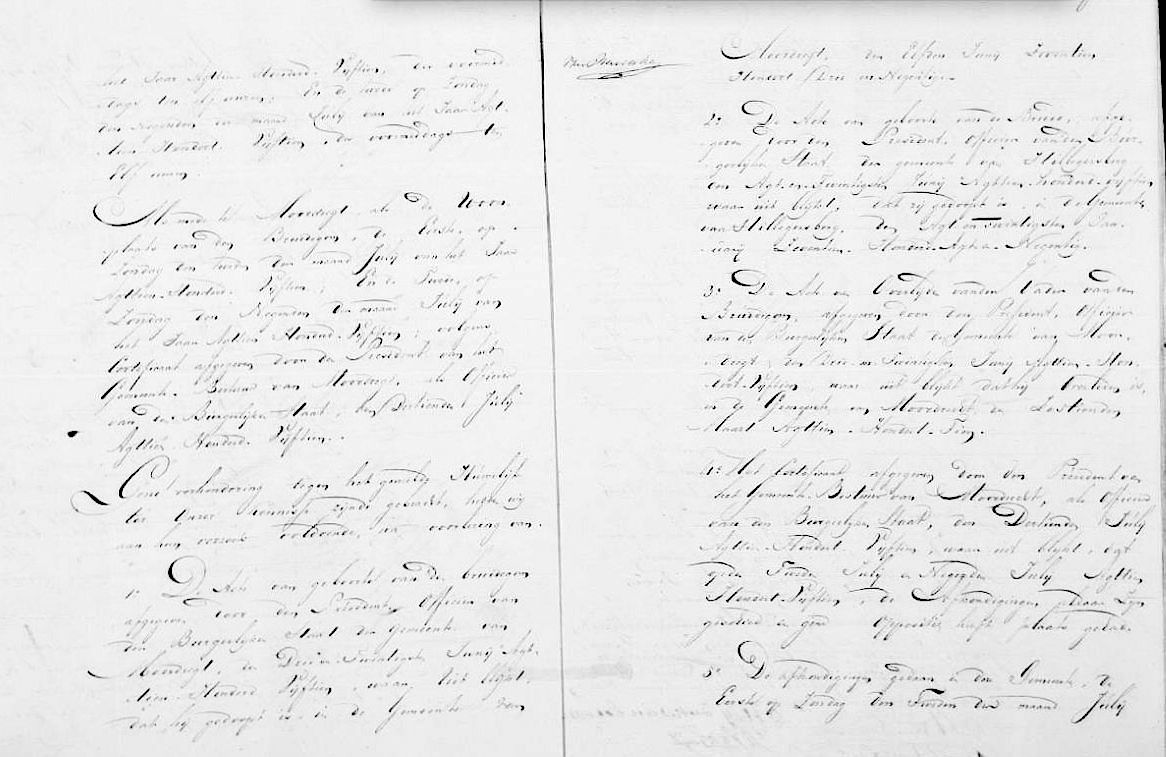 het Jaar Agttien Honderd Vyftien, des voormid
dags ten elf uuren; En de twede op Zondag
den Negenden der maand July van het Jaar Agt
tien Honderd Vyftien, des voormiddags ten
Elf uuren.
Als mede te Moordregt, als de Woon
plaats van den Bruidegom, de Eerste, op
Zondag den tweden der maand July van het Jaar
Agttien Honderd Vyftien; En de Twede, op
Zondag den Negenden der maand July van
het Jaar Agttien Honderd Vyftien, volgens
Certificaat afgegeven door den President van het
Gemeente Bestuur van Moordregt, als Officier
van den Burgerlyken Staat, den Dertienden July
Agttien Honderd Vyftien.
Geene verhindering tegen het gemelde Huwelijk
ter onzer kennisse zynde gebragt, hebben wy
aan hun verzoek voldoende, na voorlezing van
1o De Acte van geboorte van den bruidegom
afgegeven door den President, Officier van
den Burgerlyken Staat der Gemeente van
Moordregt, den Drie en Twintigsten Juny Agt
tien Honderd Vyftien, waar uit blykt,
dat hy gedoopt is, in de Gemeente van
Moordregt, den Elfden Juny Zeventien
Honderd Drie en Negentig.
2o De Acte van geboorte van de Bruid, afge
geven door den President, Officier van den Bur
gerlyken Staat der gemeente van Hillegersberg
den Agt en Twintigsten Juny Agttien Honderd Vyftien
waar uit blykt, dat zy gedoopt is, in de Gemeente
van Hillegersberg, den Agt en twintigsten Jan
uary Zeventien Honderd Agt en Negentig.
3o De Acte van Overlyden van den Vader van den
Bruidegom, afgegeven door den President, Officier
van den Burgerlyken Staat der Gemeente van Moor
dregt, den Drie en Twintigsten Juny Agttien Hon
derd Vyftien, waar uit blykt dat hy Overleden is,
in de Gemeente van Moordrecht, den
Maart Agttien Honderd Tien.
4o Het Certificaat afgegeven door den President van
het Gemeente Bestuur van Moordrecht, als Officier
van den Burgerlyken Staat, den Dertienden July
Agttien Honderd Vyftien, waar uit blykt, dat
op den Tweden July en Negenden July Agttien
Honderd Vyftien, de Afkondigingen aldaar zyn
geschied en geene Oppositie heeft plaats gehad.
5o De afkondigingen gedaan in deze Gemeente, de
Eerste op Zondag den Tweeden der maand July